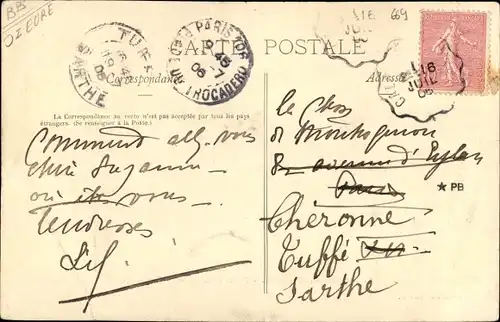 BB
OZ EURE
16 69
TUFFÉ
SARTHE
PARIS
45
06
Pl. DU TROCADERO
CARTE POSTALE
16
JUIL
06
Correspondance
Adresse
La Correspondance au recto n'est pas acceptée par tous les pays
étrangers. (Se renseigner à la Poste.)
Comment allez vous
chère Suzanne
où êtes vous
Tendresses
de
Montesquiou
82 avenue d'Eylau
Paris
★ PB
Chéronne
Tuffé
Sarthe